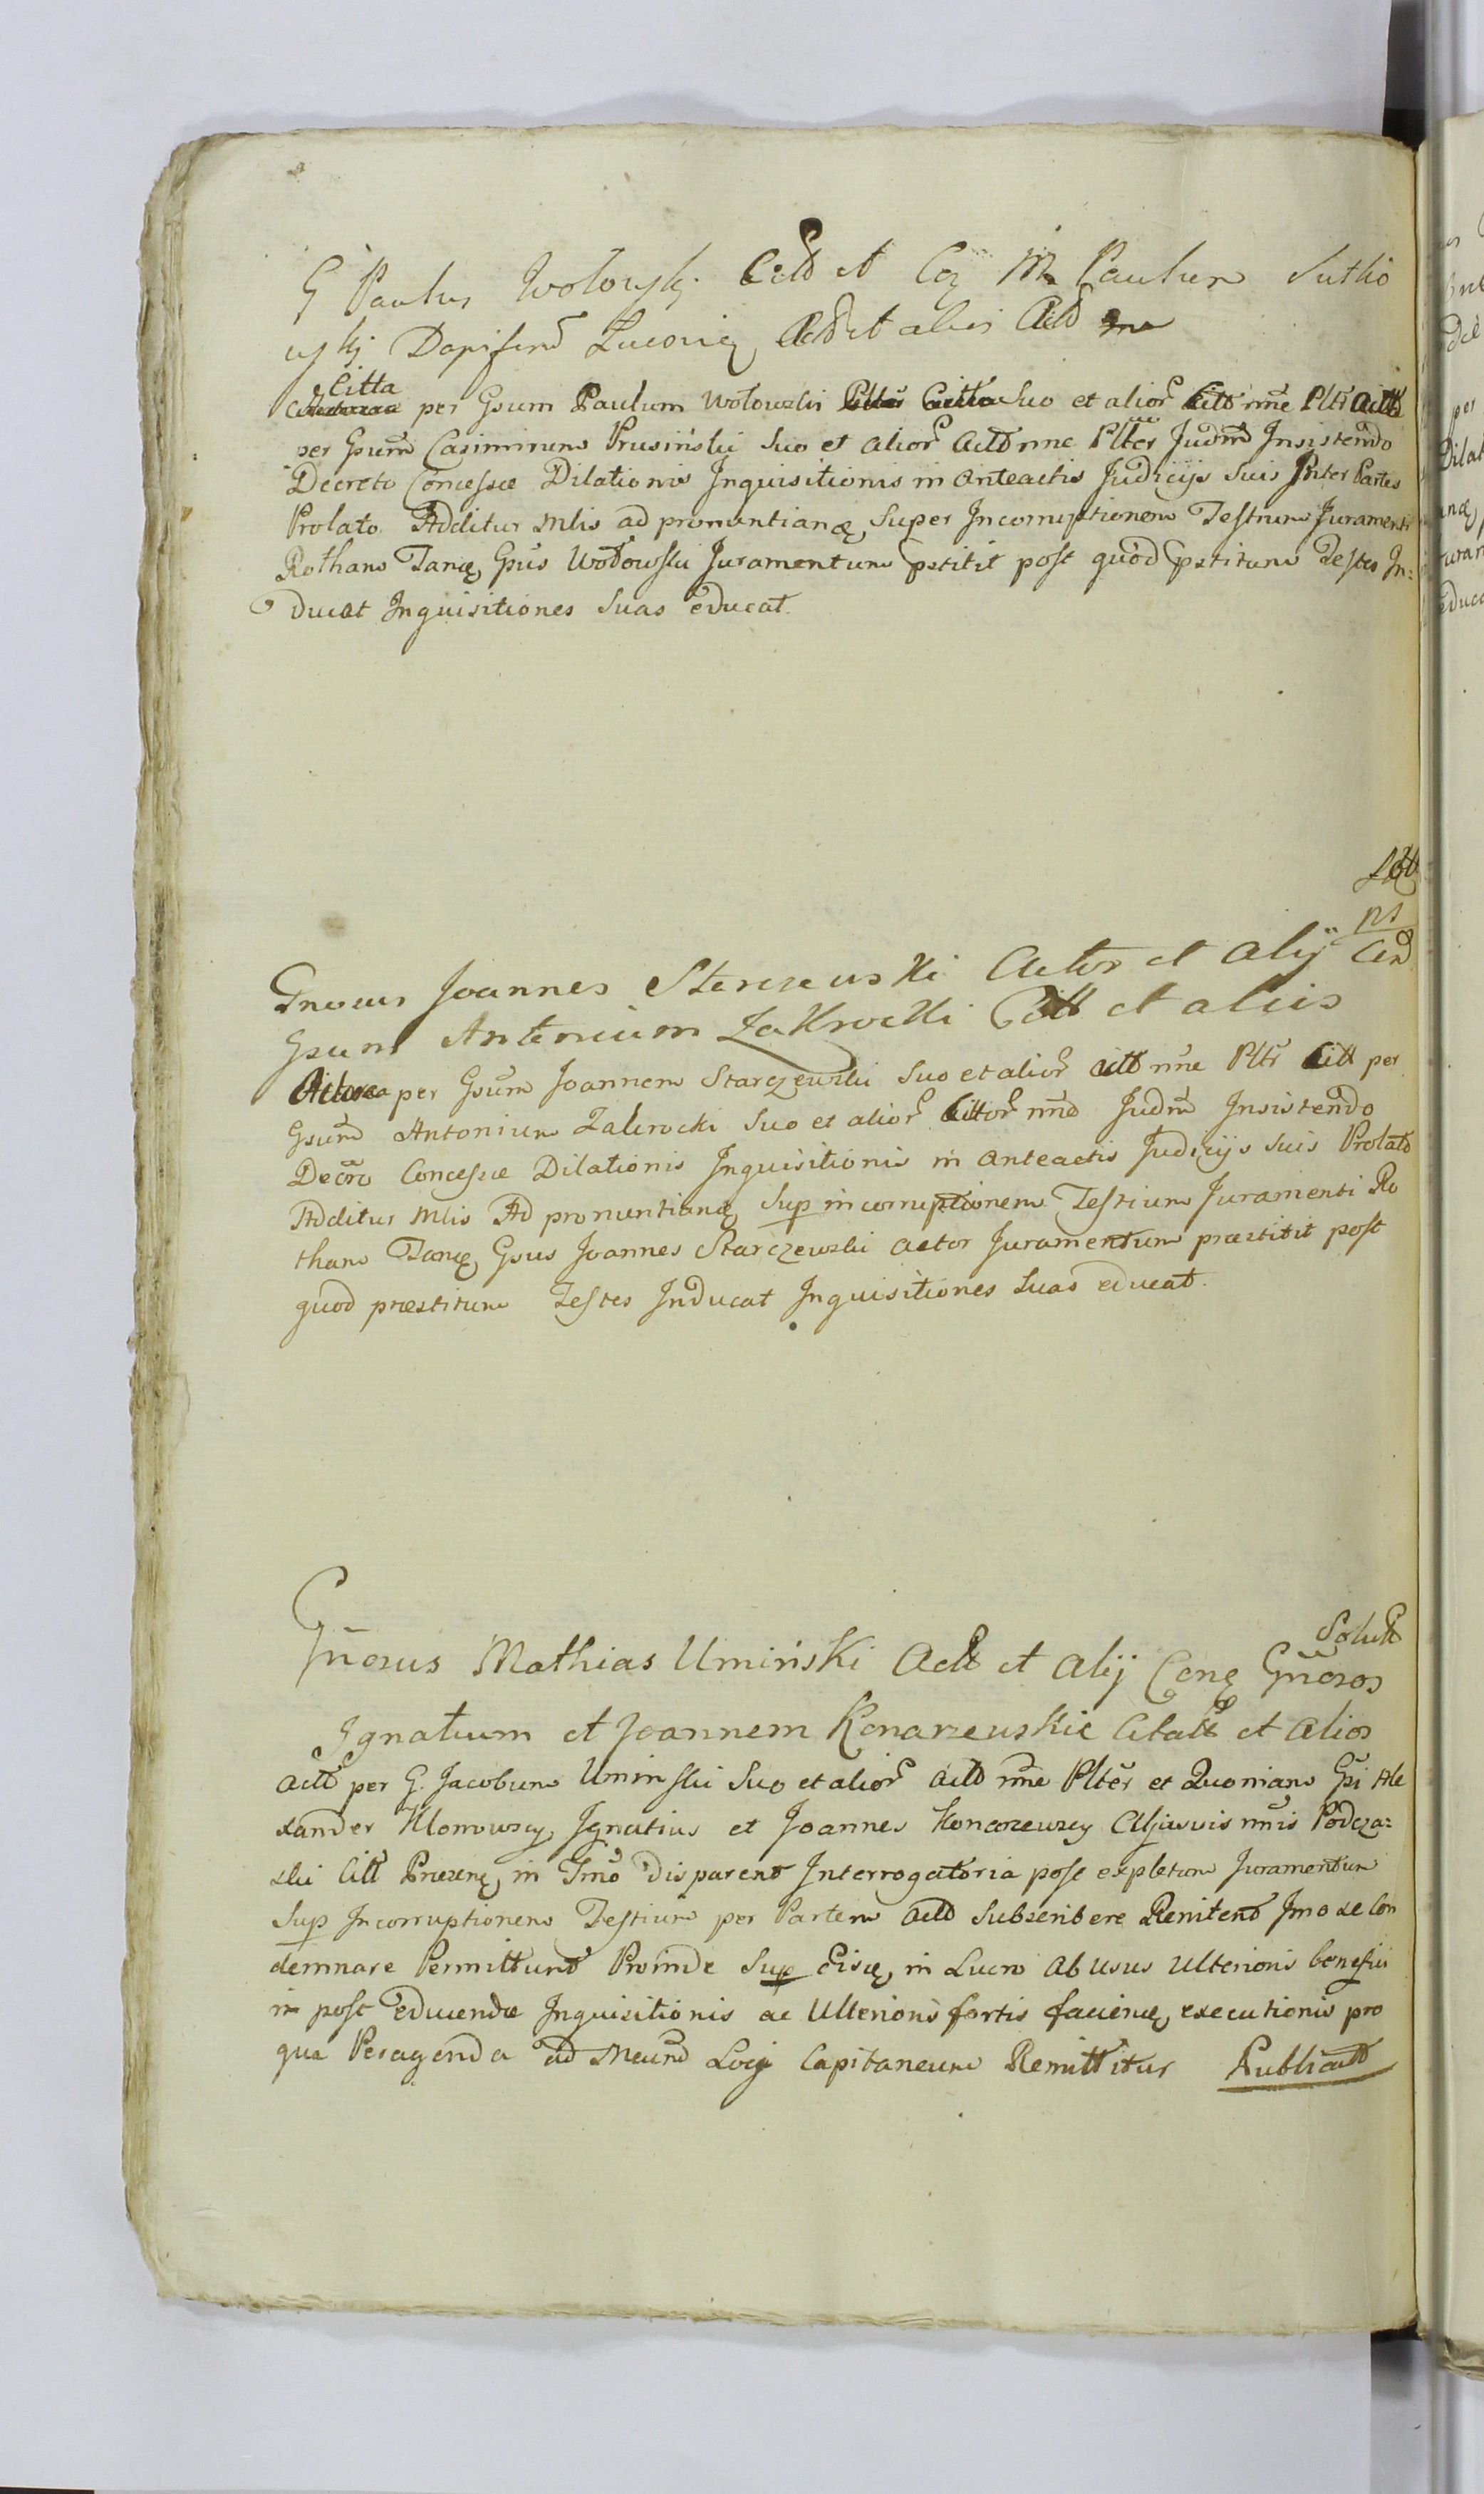 G Paulus Wołowskj Citt et Cq M. Paulum Sutko
wskj Dapiferū Luconię Act et alios Act
Citta
per Gsum Paulum Wołowski Suo et alior Citt nne Pltr Actt
per Gsum Casimirum Prusiński Suo et alior Act nne Pltēr Judm Insistendo
Decreto Concessæ Dilationis Inquisitionis in Anteactis Judicijs Suis Inter Partes
Prolato Additur Mlis ad pronuntianę Super Incorruptionem Testium Juramenti
Rotham Tanę Gsus Wołowski Juramentum pstitit post quod pstitum Testes In:
ducat Inquisitiones Suas educat.
Gnosus Joannes Starczewski Actor et Alij
Gsum Antonium Zakrocki Citt et aliis
Actorea per Gsum Joannem Starczewski Suo et alior Actt nne Pltr Citt per
Gsum Antonium Zakrocki Suo et alior Cittor nne Judm Insistendo
Decro Concessæ Dilationis Inquisitionis in Anteactis Judicijs Suis Prolato
Additur Mlis Ad pronuntianę Sup incorruptionem Testium Juramenti Ro
tham Tanę Gsus Joannes Starczewski actor Juramentum præstitit post
quod præstitum Testes Inducat Inquisitiones Suas educat.
Solutt
Gnosus Mathias Umiński Actt et Alij Conę Gnosos
Ignatium et Joannem Konarzewskie Citatt et Alios
Actt per G. Jacobum Uminski Suo et alior Actt nne Pltēr et Quoniam Gsi Ale
xander Klonowscy, Ignatius et Joannes Konarzewscy Aljasvis nnis Podcza:
ski Citt Præsenę in Tmō disparent Interrogatoria post expletum Juramentum
Sup Incorruptionem Testium per Partem Actt Subscribere Renitent Imo se Con
demnare Permittunt Proinde Sup Eisę in Lucro Abusus Ulterioris beneficii
in post educendæ Inquisitionis ac Ulterioris fortis faciendę executionis pro
qua Peragenda ad Locj Capitaneum Remittitur Publicatt